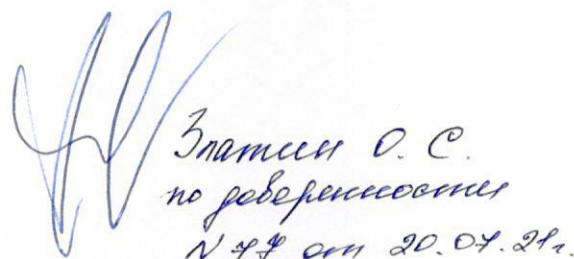 Златин О. С.
по доверенности
N 77 от 20.07.21г.